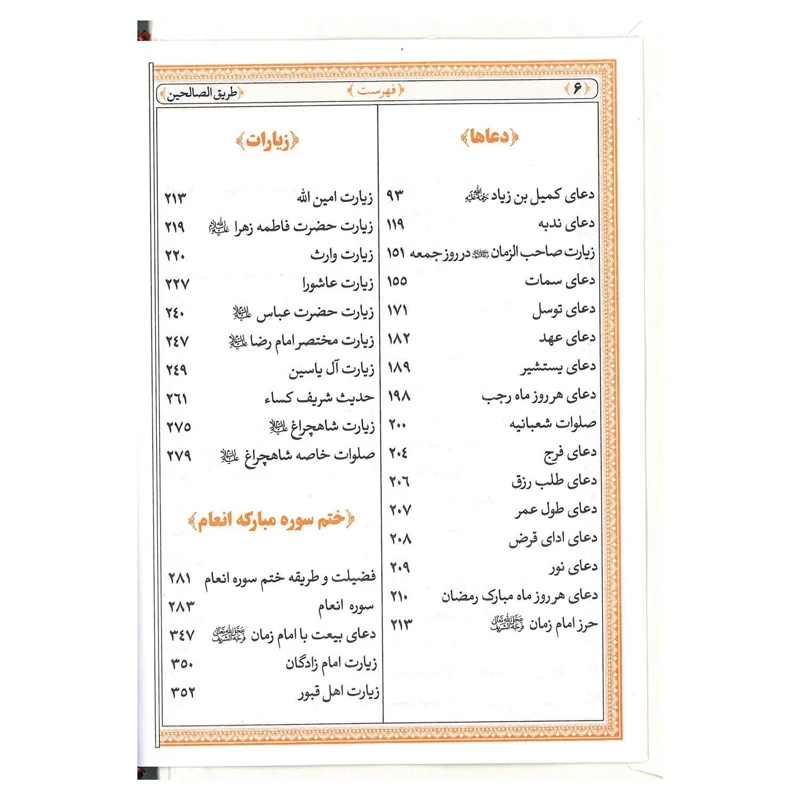 ۶
﴿فهرست﴾
﴿طریق الصالحین﴾
﴿دعاها﴾
دعای کمیل بن زیاد ۹۳
دعای ندبه ۱۱۹
زیارت صاحب الزمان در روز جمعه ۱۵۱
دعای سمات ۱۵۵
دعای توسل ۱۷۱
دعای عهد ۱۸۲
دعای یستشیر ۱۸۹
دعای هر روز ماه رجب ۱۹۸
صلوات شعبانیه ۲۰۰
دعای فرج ۲۰۴
دعای طلب رزق ۲۰۶
دعای طول عمر ۲۰۷
دعای ادای قرض ۲۰۸
دعای نور ۲۰۹
دعای هر روز ماه مبارک رمضان ۲۱۰
حرز امام زمان ۲۱۳
﴿زیارات﴾
زیارت امین الله ۲۱۳
زیارت حضرت فاطمه زهرا ۲۱۹
زیارت وارث ۲۲۰
زیارت عاشورا ۲۲۷
زیارت حضرت عباس ۲۴۰
زیارت مختصر امام رضا ۲۴۷
زیارت آل یاسین ۲۴۹
حدیث شریف کساء ۲۶۱
زیارت شاهچراغ ۲۷۵
صلوات خاصه شاهچراغ ۲۷۹
﴿ختم سوره مبارکه انعام﴾
فضیلت و طریقه ختم سوره انعام ۲۸۱
سوره انعام ۲۸۳
دعای بیعت با امام زمان ۳۴۷
زیارت امام زادگان ۳۵۰
زیارت اهل قبور ۳۵۲